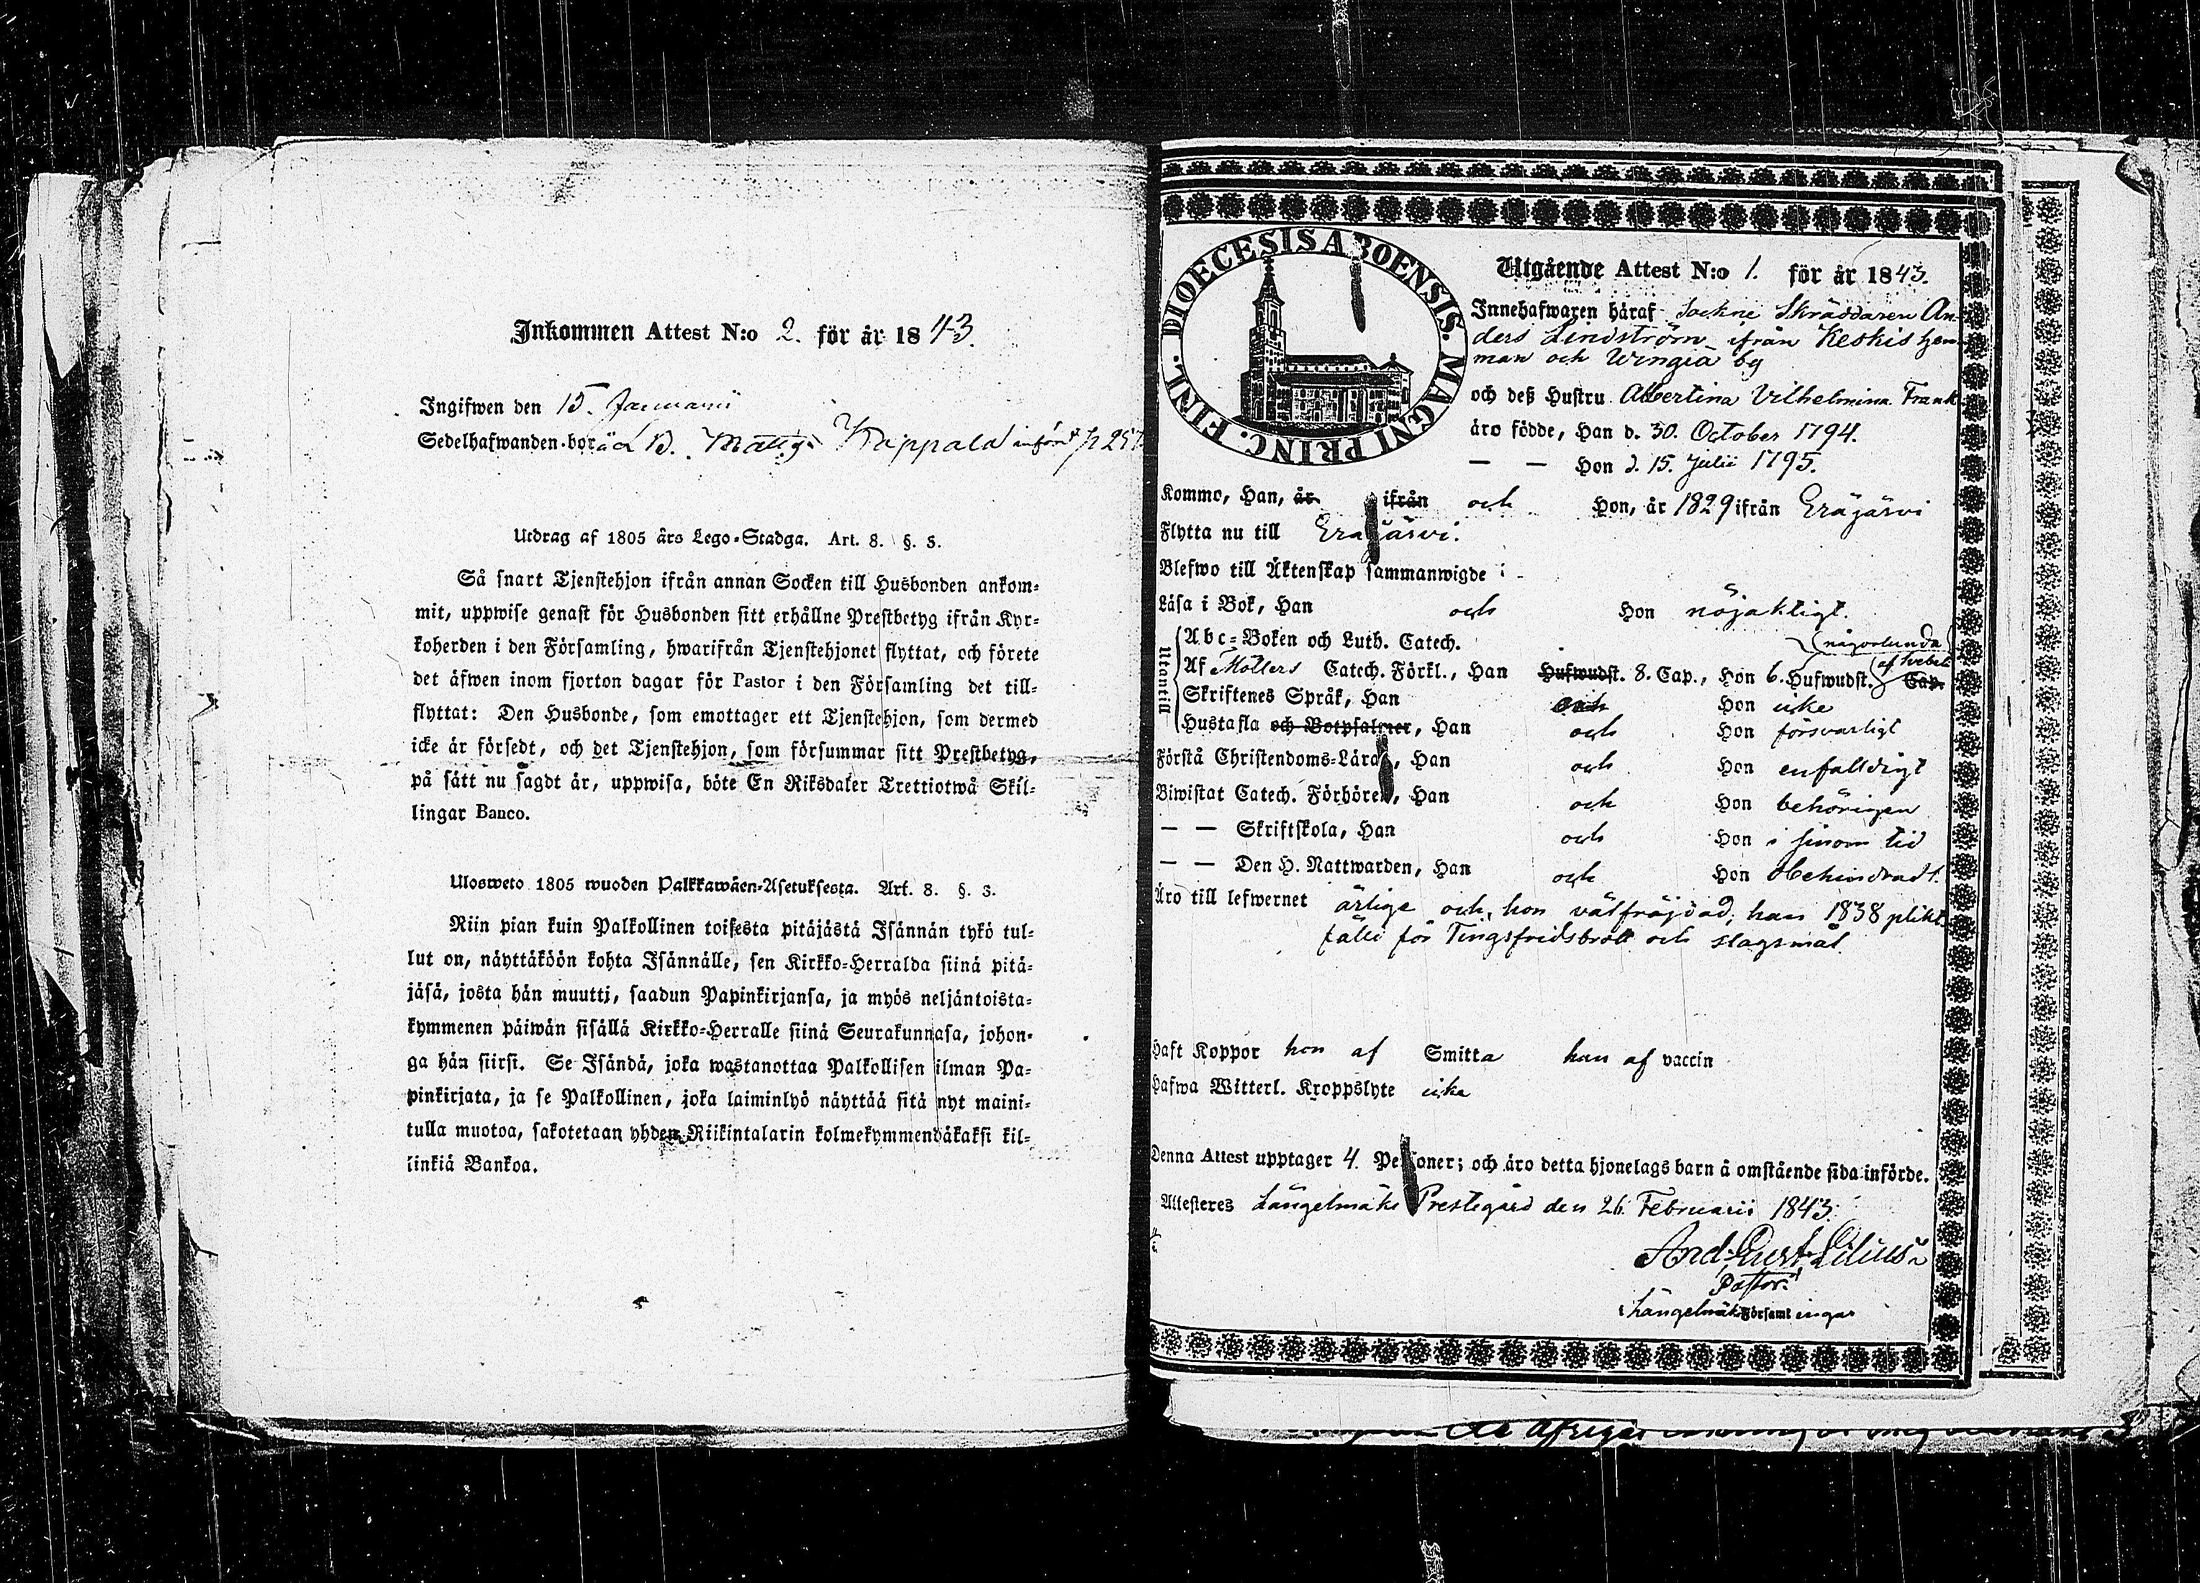 Inkommen Attest N:o 2. för år 1843.
Ingifwen den 15. Januarii
Sedelhafwanden bor å L B. Kappala införd p 257
Utdrag af 1805 års Lego-Stadga. Art. 8. §. 3.
Så snart Tjenstehjon ifrån annan Socken till Husbonden ankom-
mit, uppwise genast för Husbonden sitt erhållne Prestbetyg ifrån Kyr-
koherden i den Församling, hwarifrån Tjenstehjonet flyttat, och förete
det äfwen inom fjorton dagar för Pastor i den Församling det till-
flyttat: Den Husbonde, som emottager ett Tjenstehjon, som dermed
icke är försedt, och det Tjenstehjon, som försummar sitt Prestbetyg,
på sätt nu sagdt är, uppwisa, böte En Riksdaler Trettiotwå Skil-
lingar Banco.
Ulosweto 1805 wuoden Palkkawäen-Asetuksesta. Art. 8. §. 3.
Niin pian kuin Palkollinen toisesta pitäjästä Isännän tykö tul-
lut on, näyttäköön kohta Isännälle, sen Kirkko-Herralda siinä pitä-
jäsä, josta hän muutti, saadun Papinkirjansa, ja myös neljäntoista-
kymmenen päiwän sisällä Kirkko-Herralle siinä Seurakunnasa, johon-
ga hän siirsi. Se Isändä, joka wastanottaa Palkollisen ilman Pa-
pinkirjata, ja se Palkollinen, joka laiminlyö näyttää sitä nyt maini-
tulla muotoa, sakotetaan yhden Riikintalarin kolmekymmendäkaksi kil-
linkiä Bankoa.
DIOECESIS ABOENSIS. MAGNI PRINC. FINL.
Utgående Attest N:o 1. för år 1843.
Innehafwaren häraf Sockne Skräddaren An-
ders Lindström ifrån Keskis hem-
man och Wengiä by
och deß Hustru Albertina Vilhelmina Frank
äro födde, Han d. 30. October 1794.
— — Hon d. 15. Julii 1795.
Kommo, Han, år ifrån och Hon, år 1829 ifrån Eräjärvi
Flytta nu till Eräjärvi.
Blefwo till Äktenskap sammanwigde i -
Läsa i Bok, Han och Hon nöjaktigt.
Utantill
Abc-Boken och Luth. Catech. någorlunda
Af Möllers Catech. Förkl., Han Hufwudst. 8. Cap., Hon 6. Hufwudst. af Cap.
Skriftenes Språk, Han och Hon icke
Hustafla och Botpsalmer, Han och Hon försvarligt
Förstå Christendoms-Lära, Han och Hon enfalldigt
Biwistat Catech. Förhören, Han och Hon behörigen
— — Skriftskola, Han och Hon i sinom tid
— — Den H. Nattwarden, Han och Hon Obehindradt.
Äro till lefwernet ärlige och hon välfräjdad, han 1838 plikt-
fälld för Tingsfridsbrott och slagsmål.
Haft Koppor hon af Smitta han af vaccin
Hafwa Witterl. Kroppslyte icke
Denna Attest upptager 4 Personer; och äro detta hjonelags barn å omstående sida införde.
Attesteres Längelmäki Prestegård den 26. Februarii 1843.
And. Gust. Lilius
Pastor
i Längelmäki Församlingar